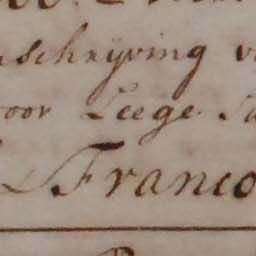 schrijving v
oor Leege
Franco